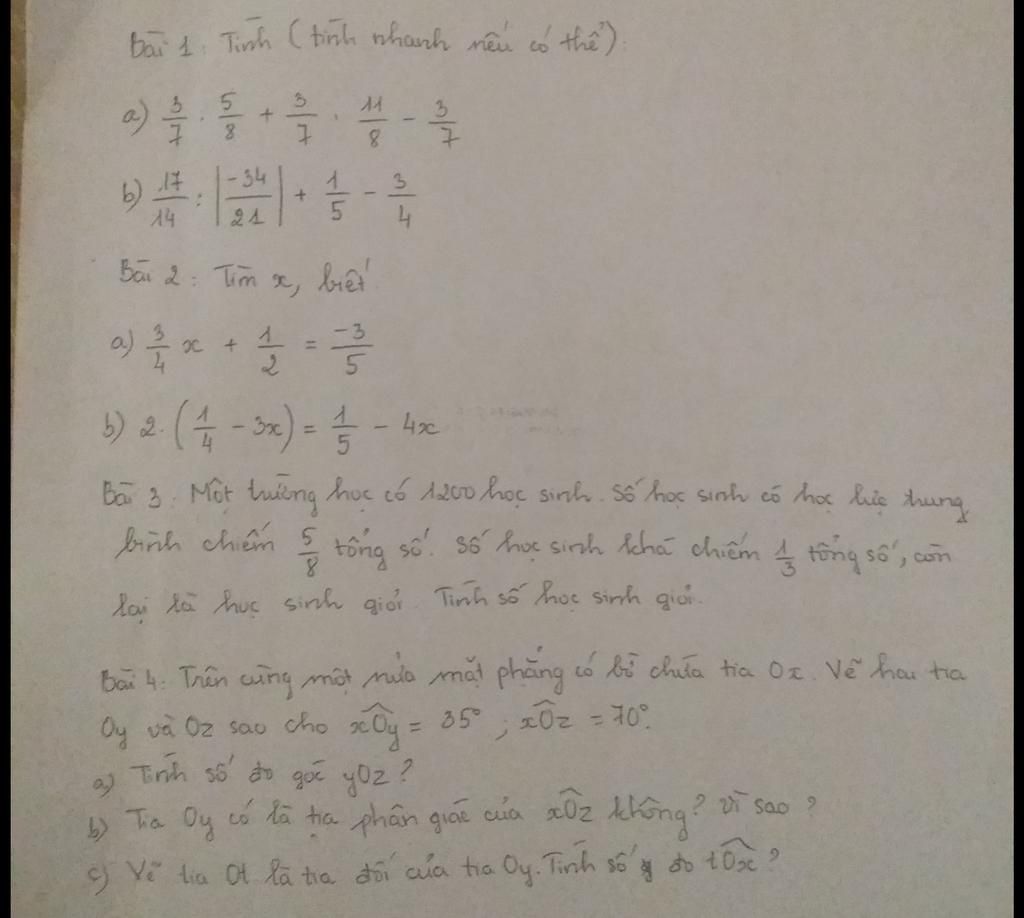 Bài 1: Tính (tính nhanh nếu có thể):
a) 3/7 . 5/8 + 3/7 . 11/8 - 3/7
b) 17/14 : |-34/21| + 1/5 - 3/4
Bài 2: Tìm x, biết
a) 3/4 x + 1/2 = -3/5
b) 2. (1/4 - 3x) = 1/5 - 4x
Bài 3: Một trường học có 1200 học sinh. Số học sinh có học lực trung
bình chiếm 5/8 tổng số. Số học sinh khá chiếm 1/3 tổng số, còn
lại là học sinh giỏi. Tính số học sinh giỏi.
Bài 4: Trên cùng một nửa mặt phẳng có bờ chứa tia Ox. Vẽ hai tia
Oy và Oz sao cho xÔy = 35° ; xÔz = 70°.
a) Tính số đo góc yOz?
b) Tia Oy có là tia phân giác của xÔz không? Vì sao?
c) Vẽ tia Ot là tia đối của tia Oy. Tính số đo tÔx?